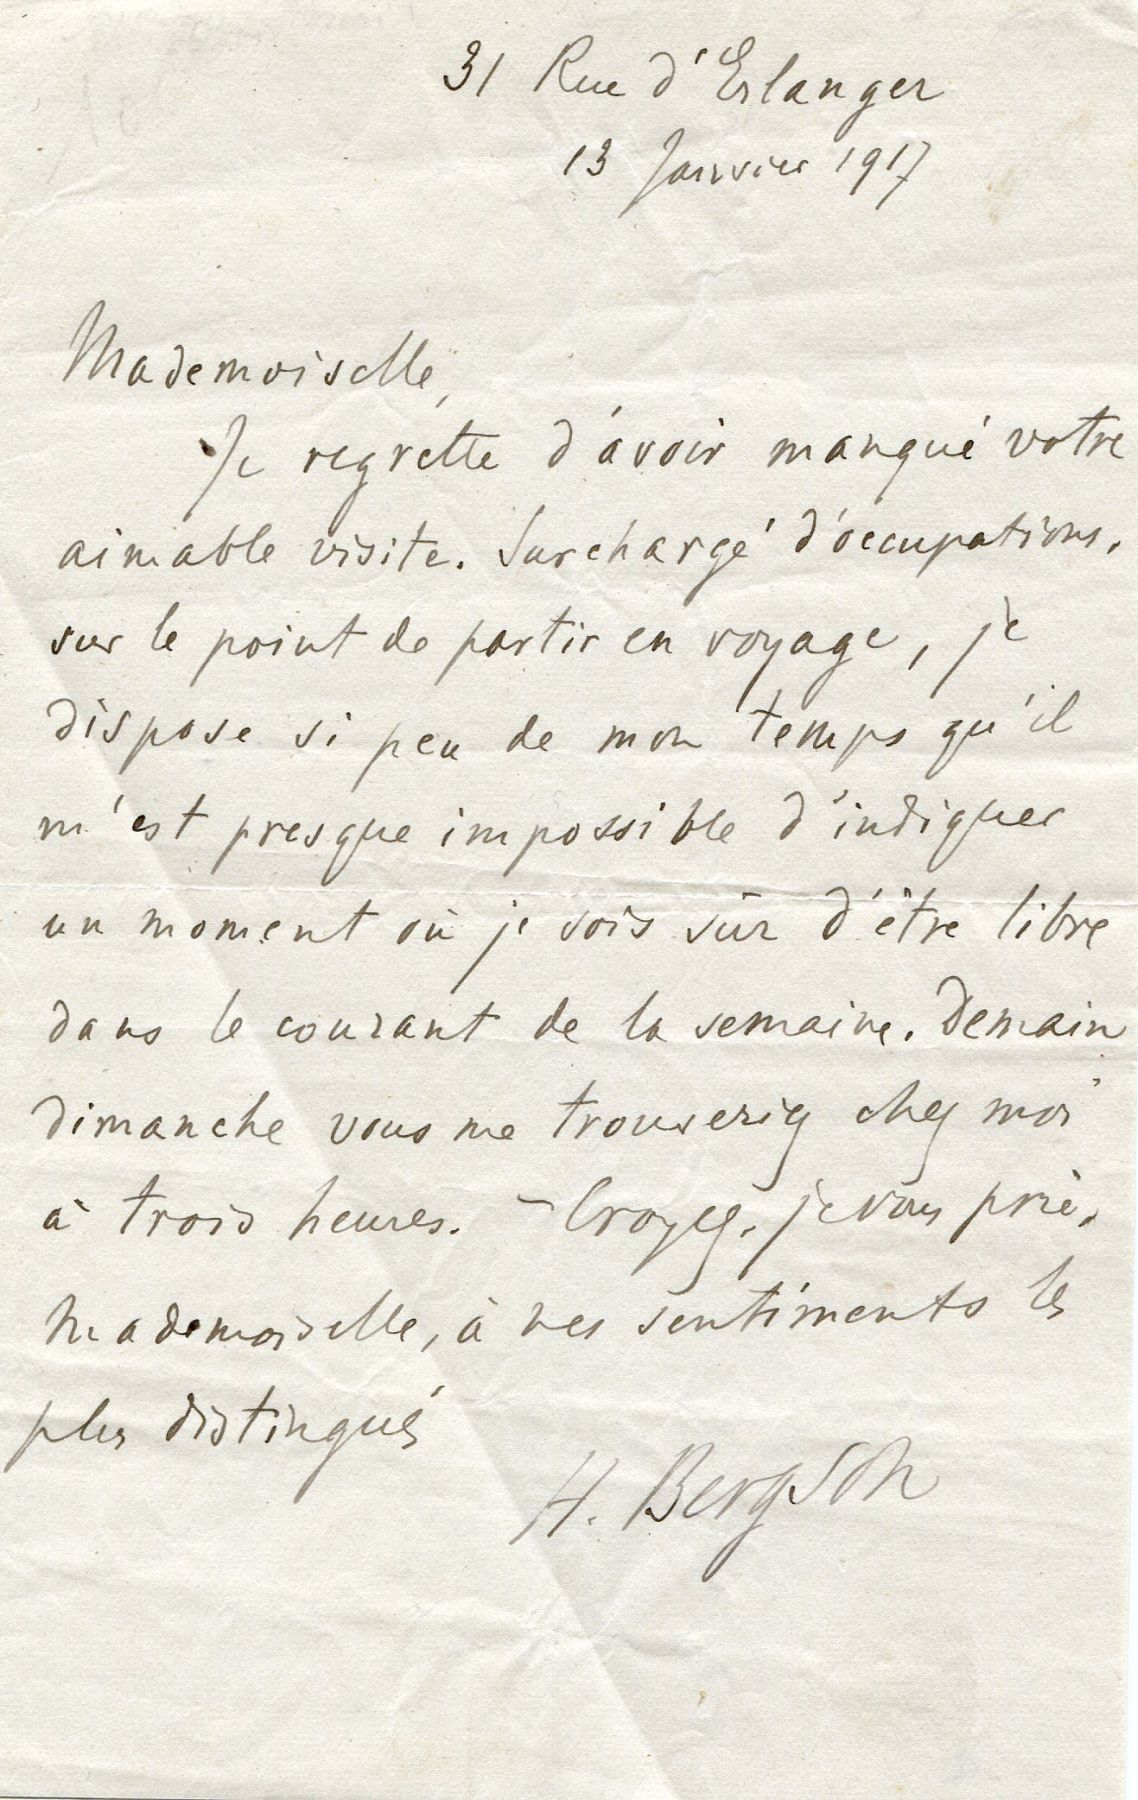 31 Rue d'Erlanger
13 Janvier 1917
Mademoiselle,
Je regrette d'avoir manqué votre
aimable visite. Surchargé d'occupations,
sur le point de partir en voyage, je
dispose si peu de mon temps qu'il
m'est presque impossible d'indiquer
un moment où je sois sûr d'être libre
dans le courant de la semaine. Demain
dimanche vous me trouveriez chez moi
à trois heures. – Croyez, je vous prie,
Mademoiselle, à mes sentiments les
plus distingués
H. Bergson